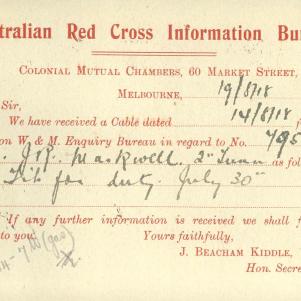 stralian Red Cross Information Bu
COLONIAL MUTUAL CHAMBERS, 60 MARKET STREET,
MELBOURNE, 19/8/18
Sir,
We have received a Cable dated 14/8/18 f
on W. & M. Enquiry Bureau in regard to No. 795
J.R. Maxwell. 2" Tunn as fol
Fit for duty. July 30"
If any further information is received we shall f
to you. Yours faithfully,
J. BEACHAM KIDDLE,
Hon. Secre
(gas)